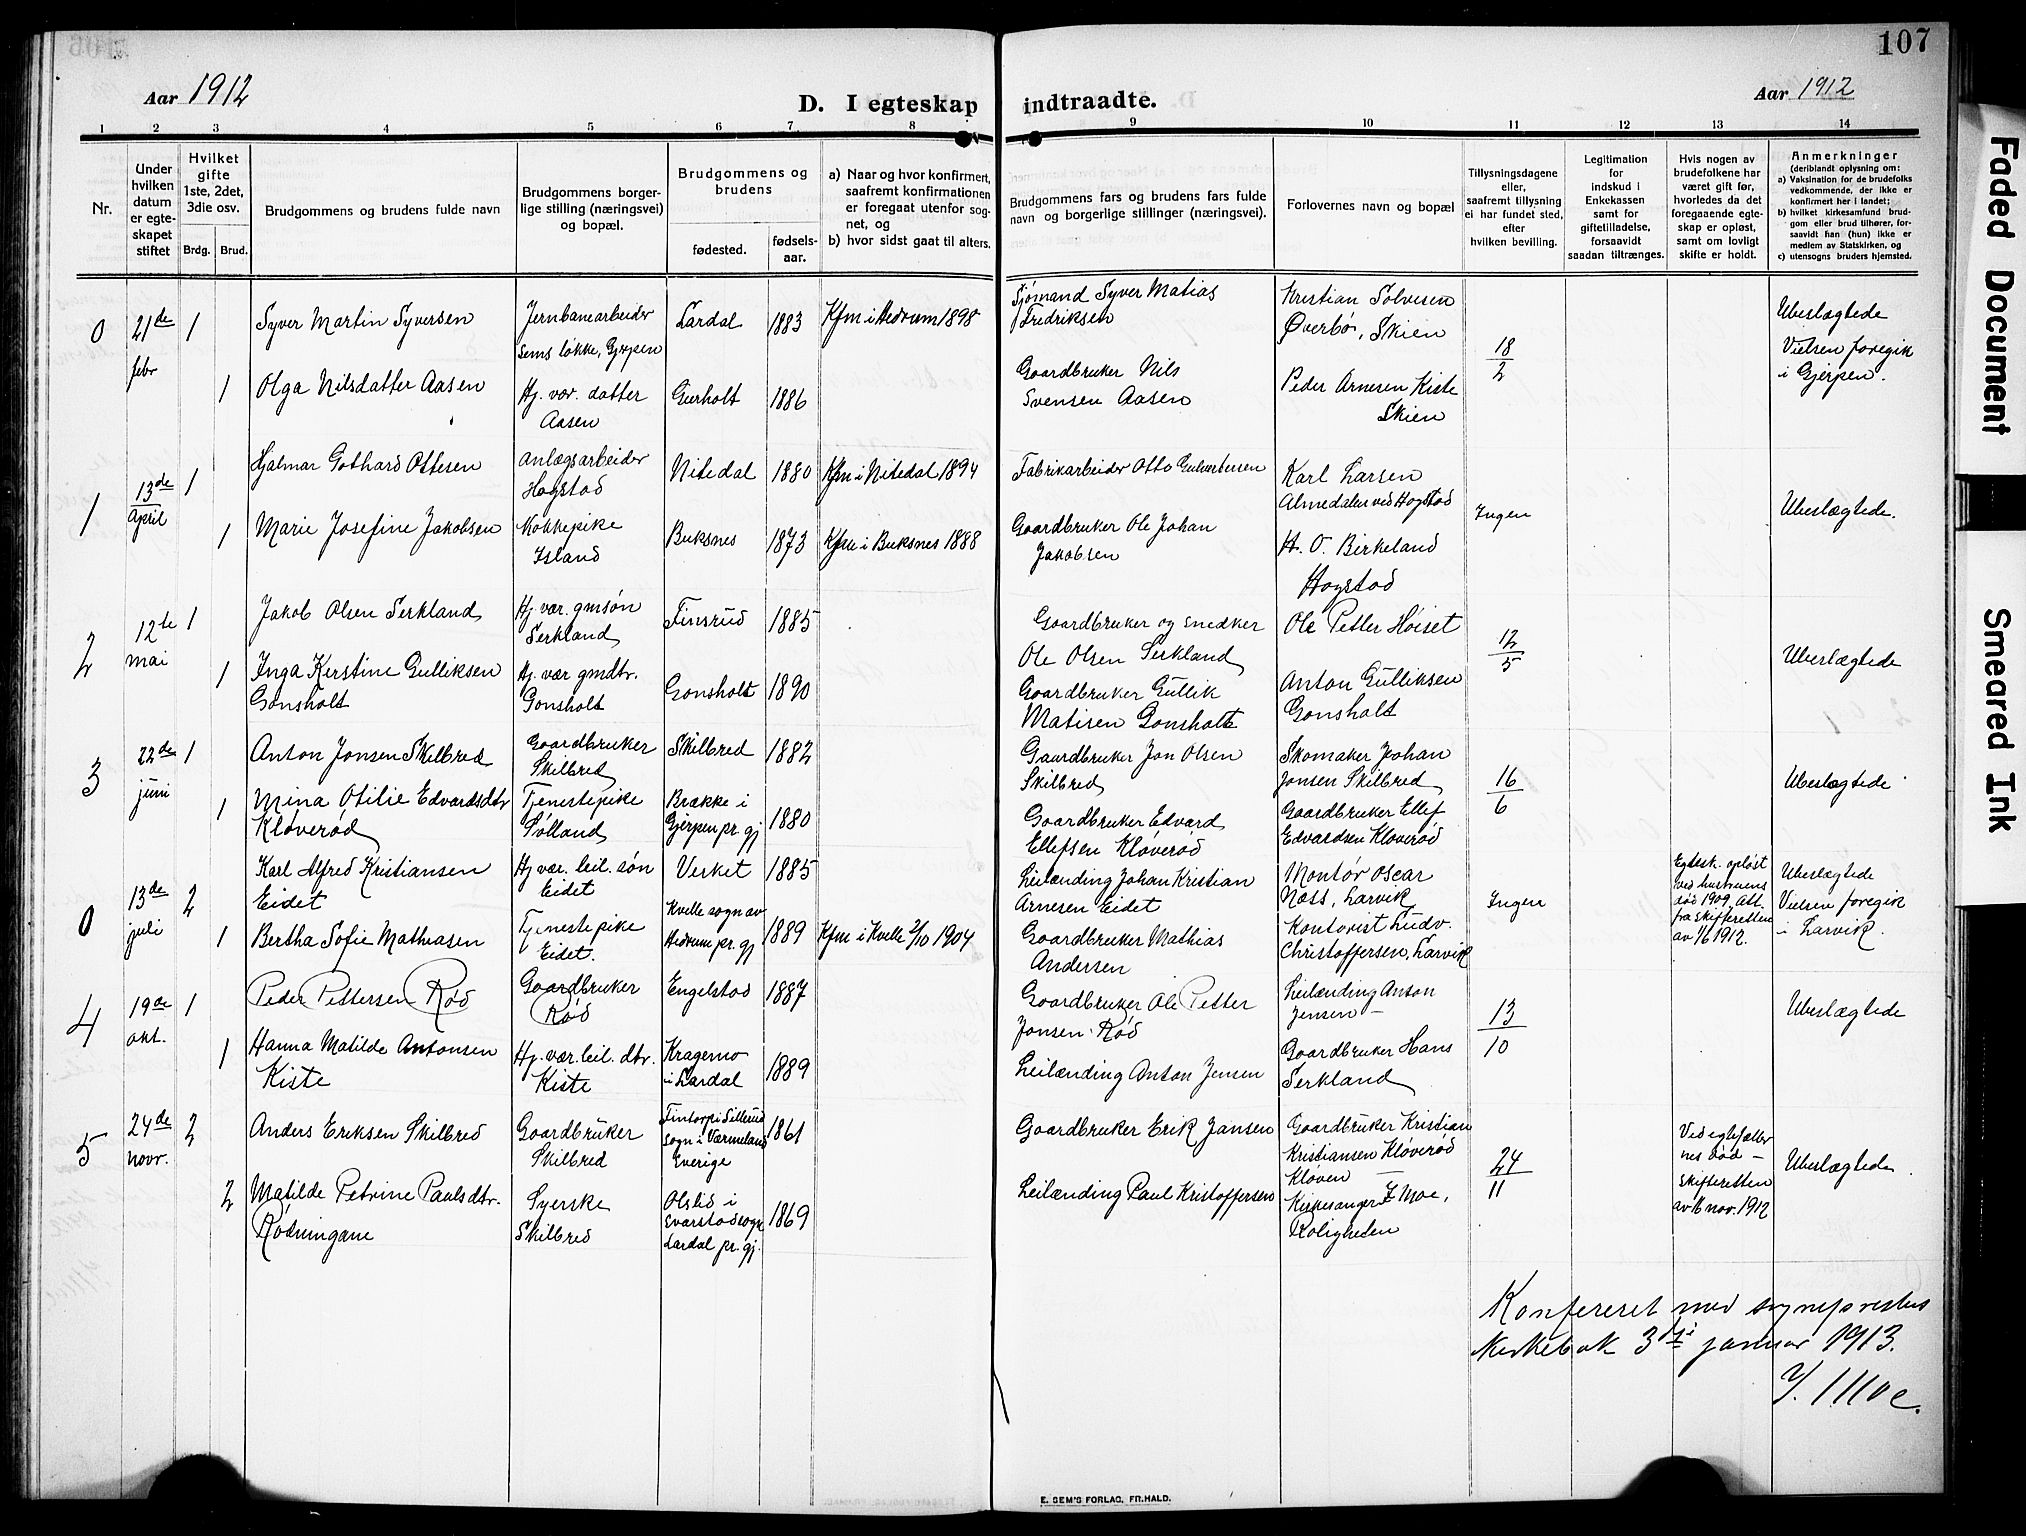 107
Aar 1912
D. I egteskap indtraadte.
Aar 1912
1 2 3 4 5 6 7 8 9 10 11 12 13 14
Nr.
Under
hvilken
datum
er egte-
skapet
stiftet
Hvilket
gifte
1ste, 2det,
3die osv.
Brdg. Brud.
Brudgommens og brudens fulde navn
Brudgommens borger-
lige stilling (næringsvei)
og bopæl.
Brudgommens og
brudens
fødested.
fødsels-
aar.
a) Naar og hvor konfirmert,
saafremt konfirmationen
er foregaat utenfor sog-
net, og
b) hvor sidst gaat til alters.
Brudgommens fars og brudens fars fulde
navn og borgerlige stillinger (næringsvei).
Forlovernes navn og bopæl
Tillysningsdagene
eller,
saafremt tillysning
ei har fundet sted,
efter
hvilken bevilling.
Legitimation
for
indskud i
Enkekassen
samt for
giftetilladelse,
forsaavidt
saadan tiltrænges.
Hvis nogen av
brudefolkene har
været gift før,
hvorledes da det
foregaaende egte-
skap er opløst,
samt om lovligt
skifte er holdt.
Anmerkninger
(deriblandt oplysning om:
a) Vaksination for de brudefolks
vedkommende, der ikke er
konfirmert her i landet;
b) hvilket kirkesamfund brud-
gom eller brud tilhører, for-
saavidt han (hun) ikke er
medlem av Statskirken, og
c) utensogns bruders hjemsted.
0
21de
febr
1
Syver Martin Syversen
Jernbanearbeider
Semsløkke, Gjerpen
Lardal
1883
Kfm i Hedrum 1898
Sjømand Syver Matias
Fredriksen
Kristian Solvesen
Øverbø, Skien
18/2
Ubeslægtede
Vielsen foregik
i Gjerpen.
1
Olga Nilsdatter Aasen
Hj. vær. datter
Aasen
Gurholt
1886
Gaardbruker Nils
Svensen Aasen
Peder Arnesen Kiste
Skien
1
13de
April
1
Hjalmar Gothard Ottesen
Anlægsarbeider
Hogstad
Nitedal
1880
Kfm i Nitedal 1894
Fabrikarbeider Otto Gulbertsen
Karl Larsen
Almedalen ved Hogstad
Ingen
Ubeslægtede.
1
Marie Josefine Jakobsen
Kokkepike
Island
Buksnes
1873
Kfm i Buksnes 1888
Gaardbruker Ole Johan
Jakobsen
H. O. Birkeland
Hogstad
2
12te
mai
1
Jakob Olsen Serkland
Hj. vær. gmsøn
Serkland
Finsrud
1885
Gaardbruker og snedker
Ole Olsen Serkland
Ole Petter Høiset
12/5
Ubeslægtede
1
Inga Kerstine Gulliksen
Gonsholt
Hj. vær gmdtr.
Gonsholt
Gonsholt
1890
Gaardbruker Gullik
Matisen Gonsholt
Anton Gulliksen
Gonsholt
3
22de
juni
1
Anton Jonsen Skilbred
Gaardbruker
Skilbred
Skilbred
1882
Gaardbruker Jon Olsen
Skilbred
Skomaker Johan
Jonsen Skilbred
16/6
Ubeslægtede
1
Mina Otilie Edvardsdtr
Kløverød
Tjenestepike
Sølland
Brække i
Gjerpen pr. gj
1880
Gaardbruker Edvard
Ellefsen Kløverød
Gaardbruker Ellef
Edvardsen Kløverød
0
13de
juli
2
Karl Alfred Kristiansen
Eidet
Hj vær. leil. søn
Eidet
Verket
1885
Leilænding Johan Kristian
Arnesen Eidet
Montør Oscar
Næss, Larvik
Ingen
Egtesk. opløst
ved hustruens
død 1909. Att.
fra skifteretten
av 1/6 1912.
Ubeslægtede
Vielsen foregik
i Larvik.
1
Bertha Sofie Mathiasen
Tjenestepike
Eidet.
Kvelle sogn av
Hedrum pr. gj
1889
Kfm i Kvelle 2/10 1904
Gaardbruker Mathias
Andersen
Kontorist Ludv.
Christoffersen, Larvik
4
19de
okt.
1
Peder Pettersen Rød
Gaardbruker
Rød
Engelstad
1887
Gaardbruker Ole Petter
Jonsen Rød
Leilænding Anton
Jensen —
13/10
Ubeslægtede
1
Hanna Matilde Antonsen
Kiste
Hj. vær. leil. dtr.
Kiste
Kragemo
i Lardal
1889
Leilænding Anton Jensen
Gaardbruker Hans
Serkland
5
24de
novr.
2
Anders Eriksen Skilbred
Gaardbruker
Skilbred
Fintorp i Sillerud
sogn i Værmeland
Sverige
1861
Gaardbruker Erik Jansen
Gaardbruker Kristian
Kristiansen Kløverød
Kløven —
24/11
Ved egtefæller
nes død —
Skifteretten
av 16 nov. 1912
Ubeslægtede.
2
Matilde Petrine Paulsdtr.
Rødningane
Syerske
Skilbred
Olslid i
Svarstad sogn
Lardal pr. gj.
1869
Leilænding Paul Kristoffersen
Kirkesanger I. Moe,
Roligheden
Konfereret med sogneprestens
kirkebok 3die januar 1913.
I. Moe.
E. SEM'S FORLAG, FR.HALD.
Faded Document
Smeared Ink